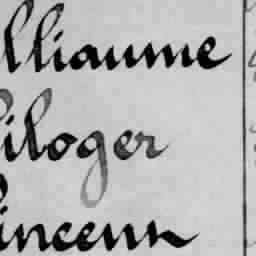 lliaume
iloger
incenn